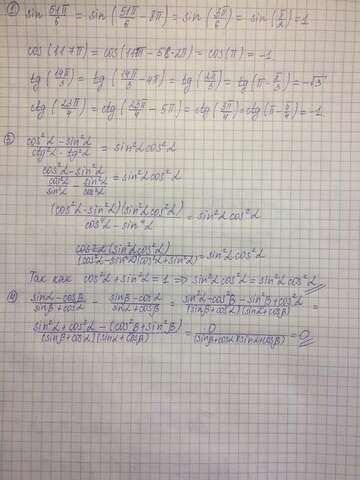 ① sin 51π/6 = sin (51π/6 − 8π) = sin (3π/6) = sin (π/2) = 1
cos (117π) = cos (117π − 58·2π) = cos(π) = −1
tg (14π/3) = tg (14π/3 − 4π) = tg (2π/3) = tg (π − π/3) = −√3
ctg (23π/4) = ctg (23π/4 − 5π) = ctg (3π/4) = ctg (π − π/4) = −1
③ (cos²α − sin²α)/(ctg²α − tg²α) = sin²α cos²α
(cos²α − sin²α)/(cos²α/sin²α − sin²α/cos²α) = sin²α cos²α
(cos²α − sin²α)(sin²α cos²α)/(cos⁴α − sin⁴α) = sin²α cos²α
cos2α (sin²α cos²α)/((cos²α − sin²α)(cos²α + sin²α)) = sin²α cos²α
Так как cos²α + sin²α = 1 ⇒ sin²α cos²α = sin²α cos²α
④ (sinα − cosβ)/(sinβ + cosα) − (sinβ − cosα)/(sinα + cosβ) = (sin²α − cos²β − sin²β + cos²α)/((sinβ + cosα)(sinα + cosβ)) =
(sin²α + cos²α − (cos²β + sin²β))/((sinβ + cosα)(sinα + cosβ)) = 0/((sinβ + cosα)(sinα + cosβ)) = 0